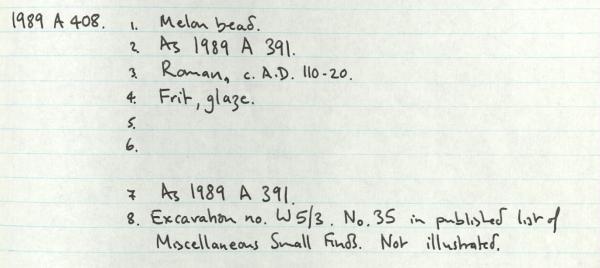 1989 A 408. 1. Melon bead.
2. As 1989 A 391.
3. Roman, c. A.D. 110-20.
4. Frit, glaze.
5.
6.
7 As 1989 A 391.
8. Excavation no. W5/3. No. 35 in published list of
Miscellaneous Small Finds. Not illustrated.